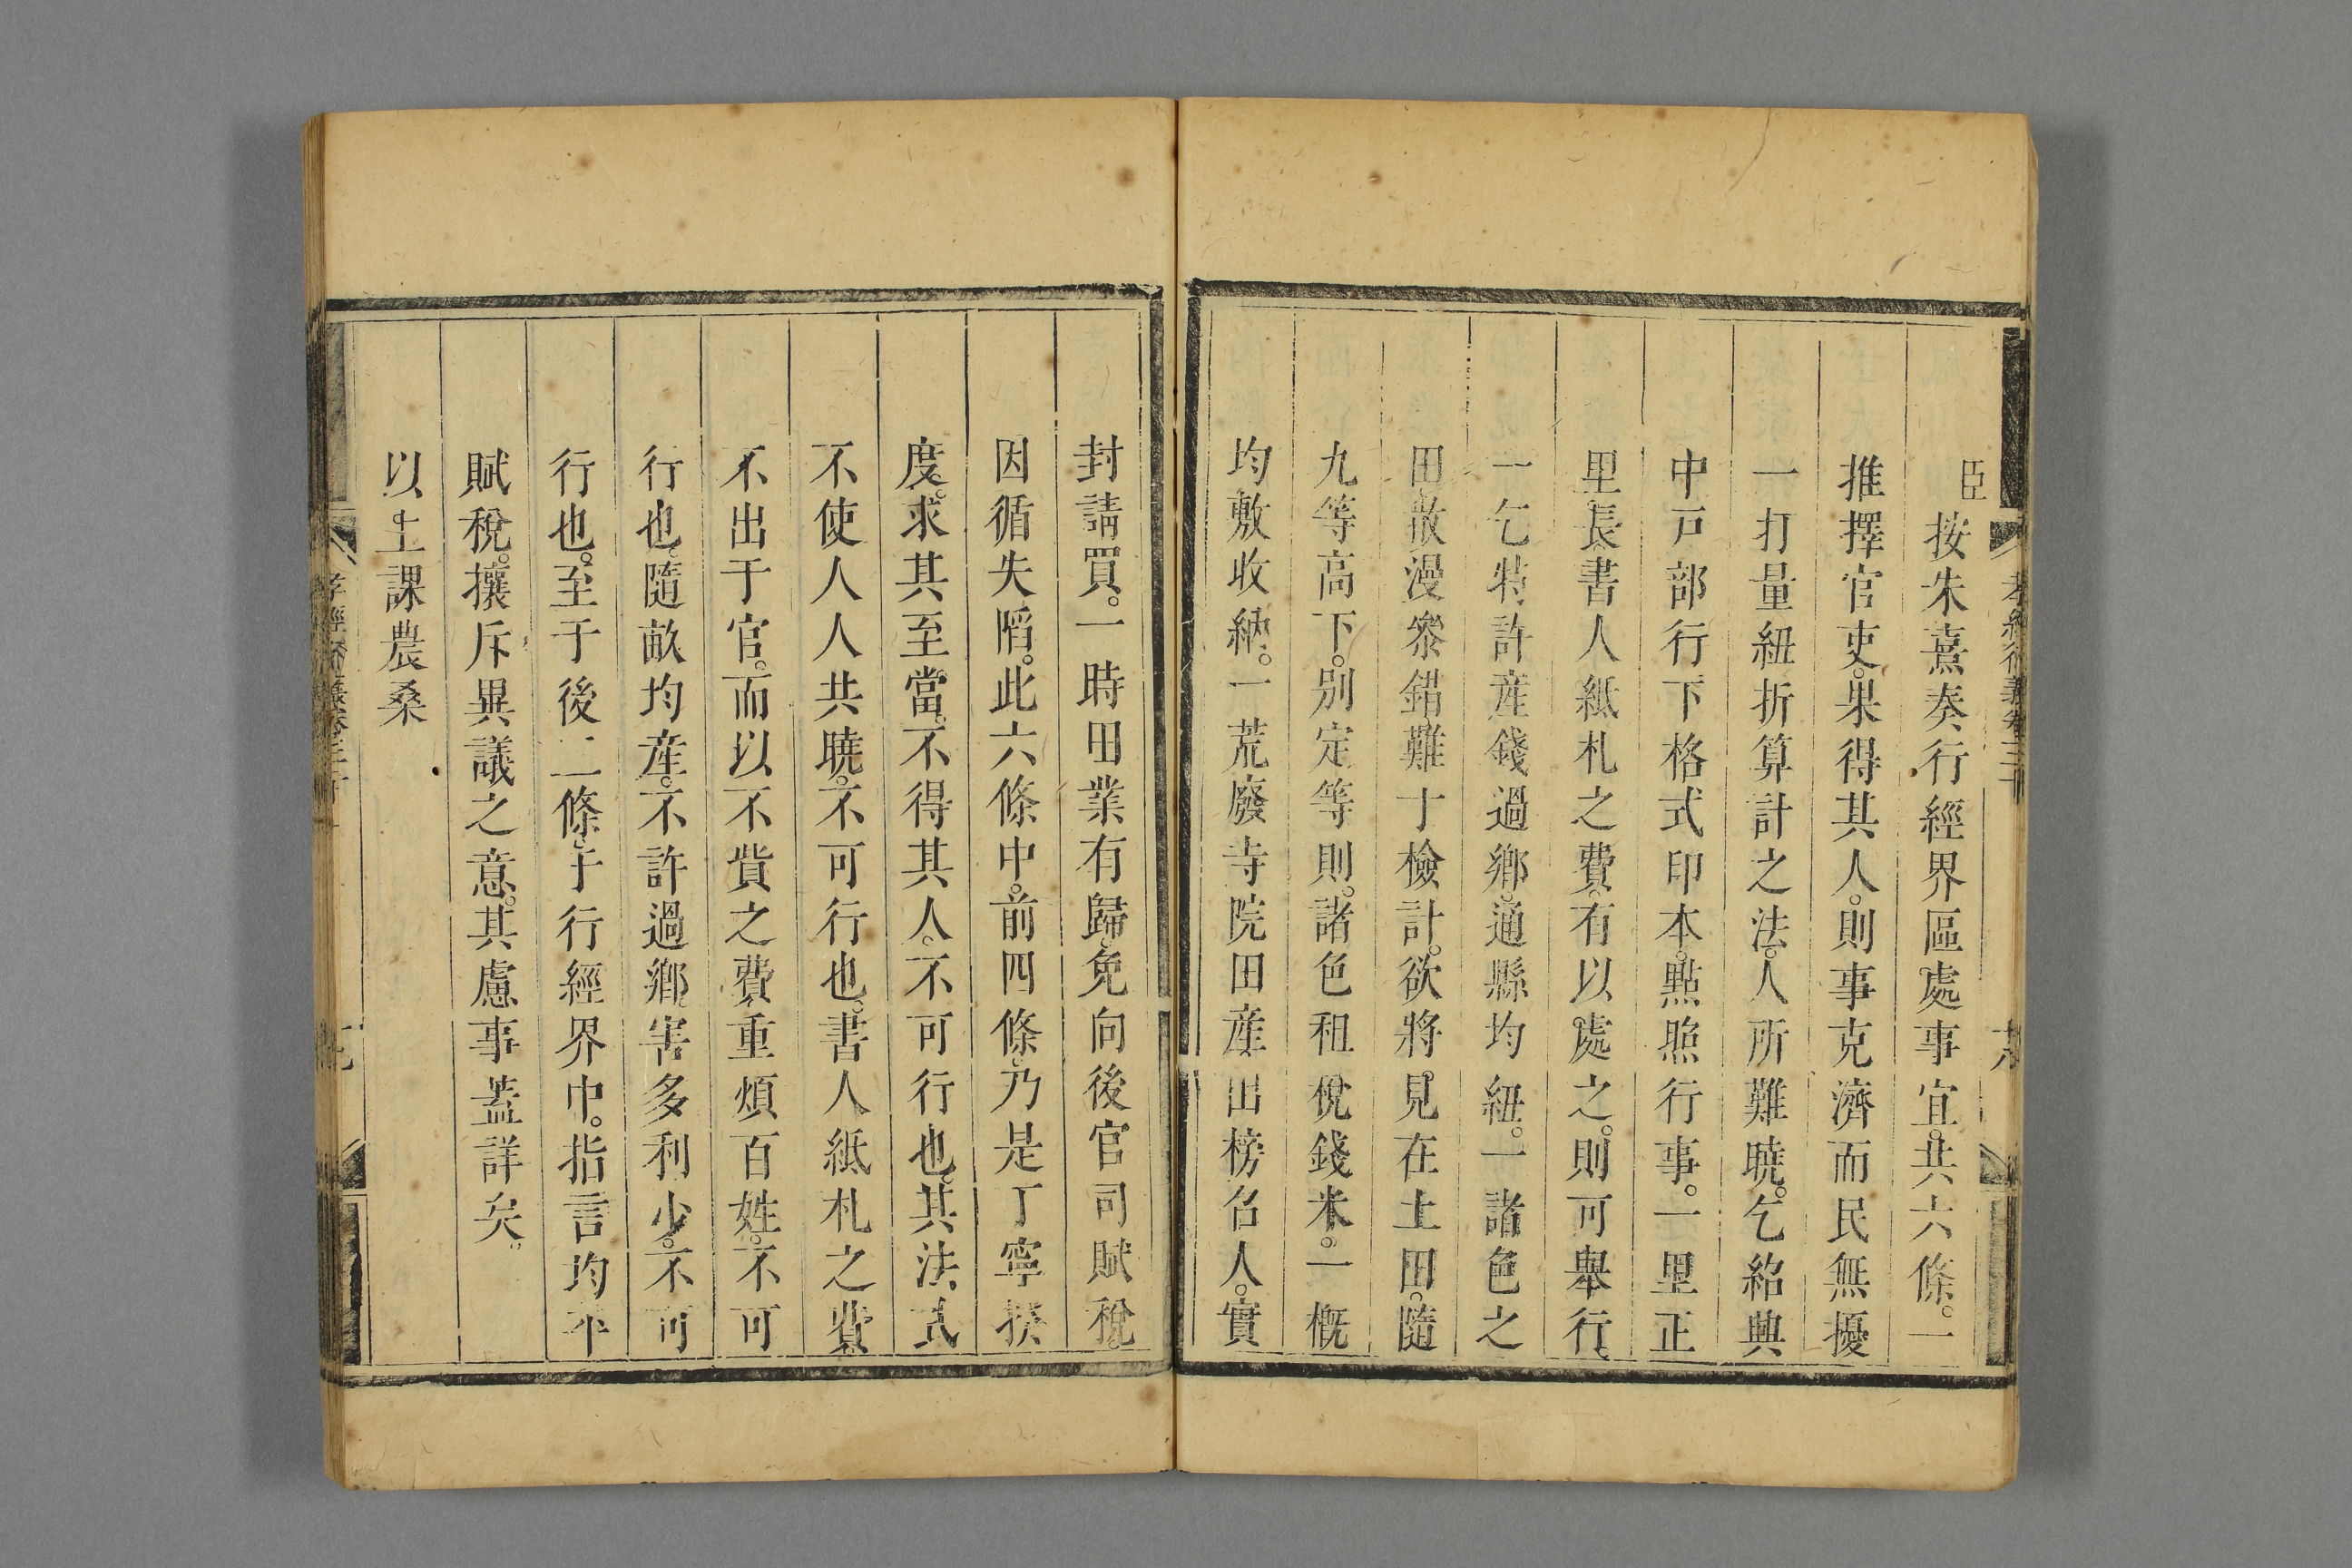 臣按朱熹奏行經界區處事宜。共六條。一
推擇官吏。果得其人。則事克濟而民無擾
一打量紐折算計之法。人所難曉。乞紹興
中戸部行下格式印本。點照行事。一里正
里長書人紙札之費。有以處之。則可舉行。
一乞特許産錢過鄉。通縣均紐。一諸色之
田散漫叅錯難于檢計。欲將見在土田。隨
九等高下。別定等則。諸色租稅錢米。一概
均敷收納。一荒廢寺院田産出榜召人。實
封請買。一時田業有歸。免向後官司賦稅。
因循失陷。此六條中。前四條。乃是丁寧揆
度。求其至當。不得其人。不可行也。其法式
不使人人共曉。不可行也。書人紙札之費
不出于官。而以不貲之費重煩百姓。不可
行也。隨畝均産。不許過鄉。害多利少。不可
行也。至于後二條。于行經界中。指言均平
賦稅。攘斥異議之意。其慮事蓋詳矣。
以土課農桑